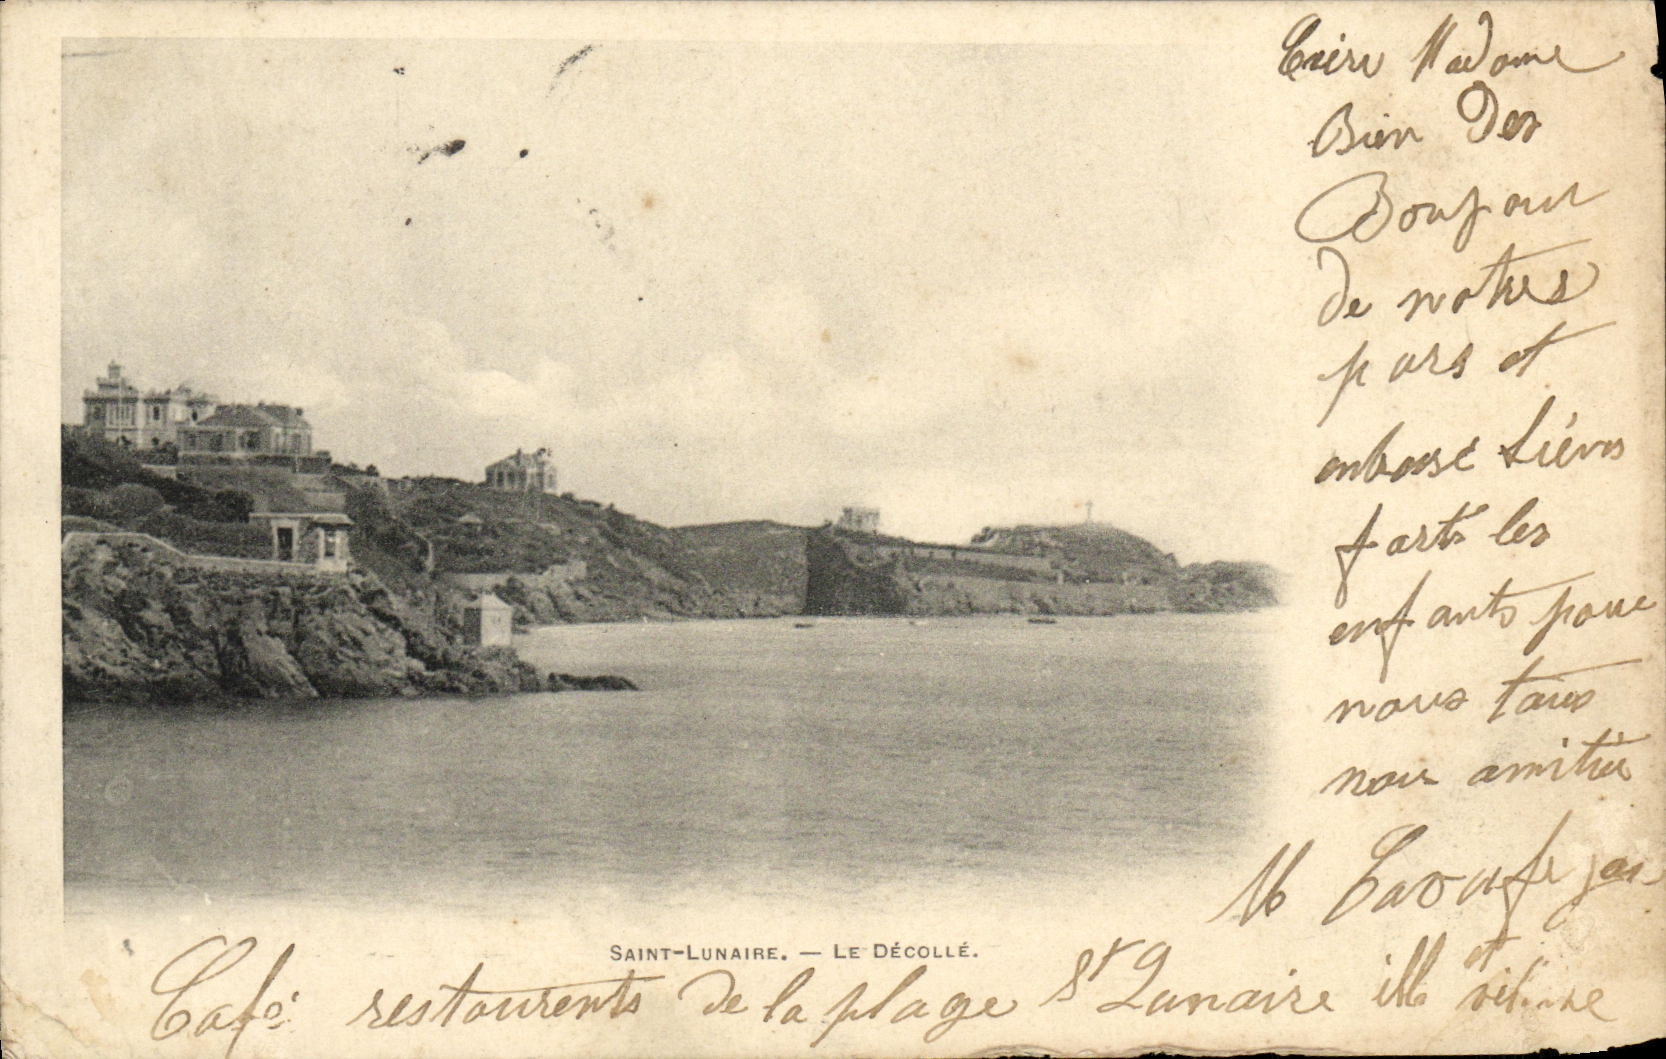 Madame
Bien Des
Bonjour
de notres
pars et
enbassé
forts les
enfants pour
nous tous
nous amitiés
M
SAINT-LUNAIRE. — LE DÉCOLLÉ.
Café restourents de la plage St Lunaire ille et vilaine